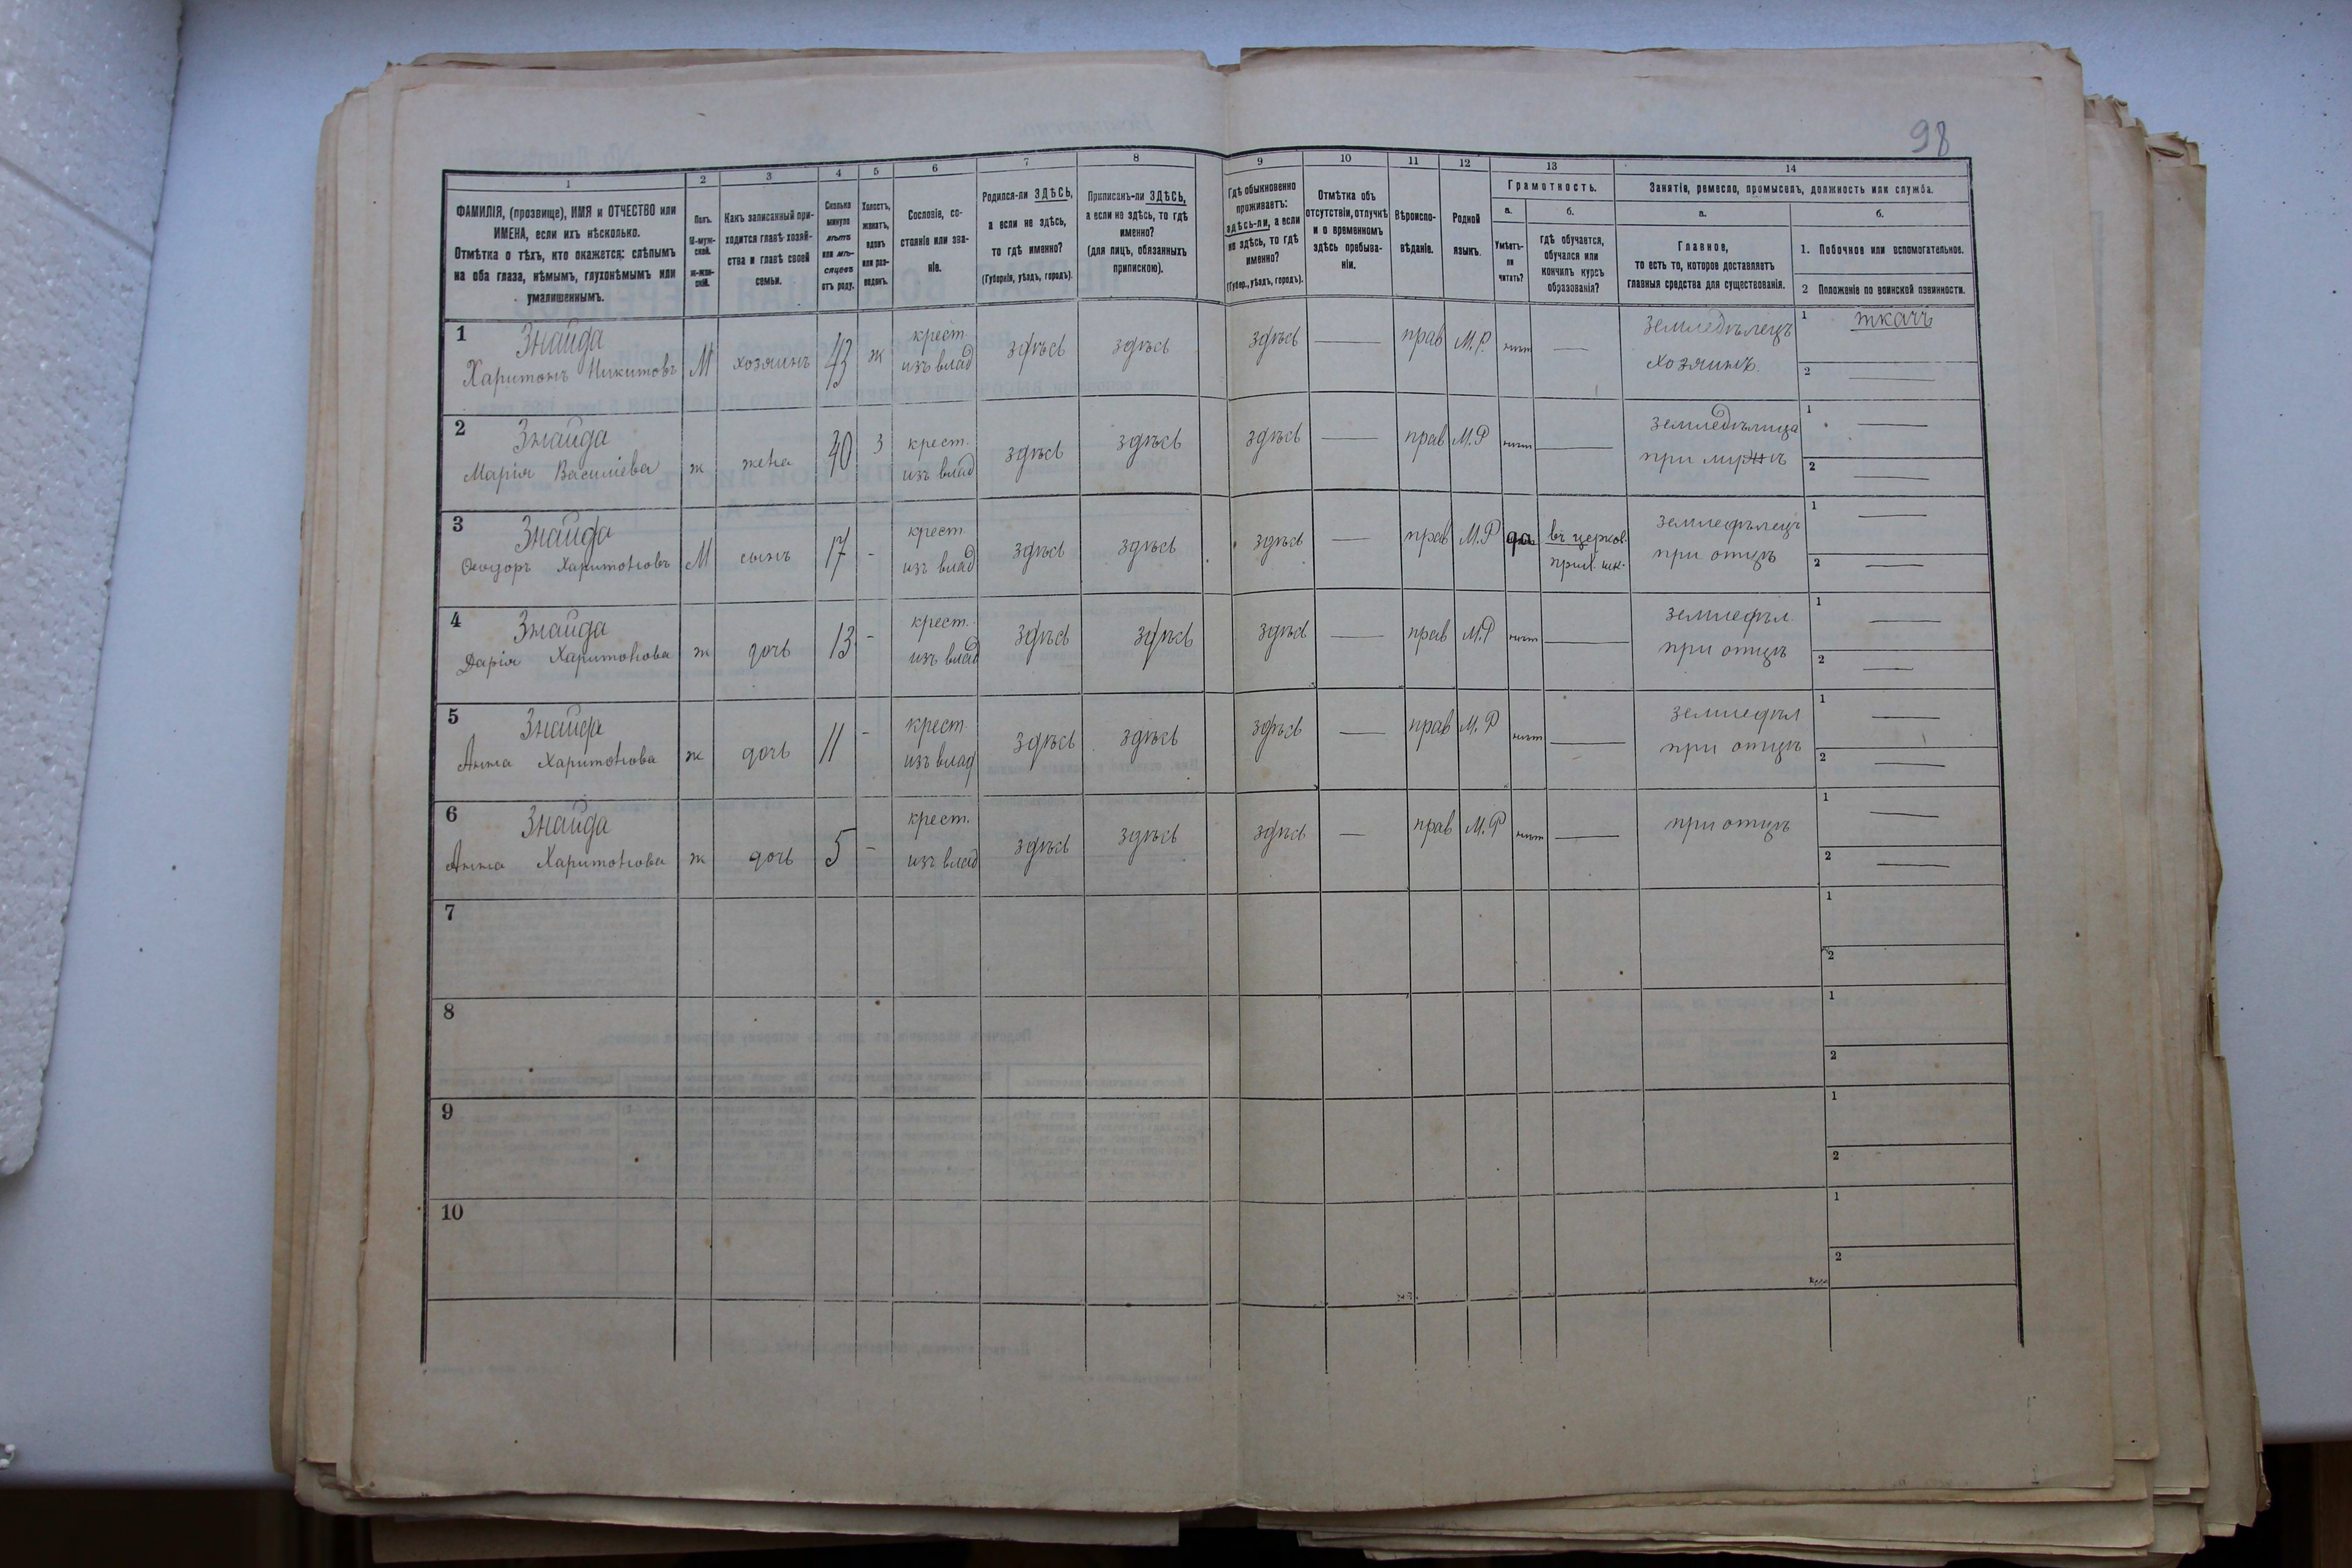 98
1 2 3 4 5 6 7 8 9 10 11 12 13 14
ФАМИЛІЯ, (прозвище), ИМЯ и ОТЧЕСТВО или
ИМЕНА, если ихъ нѣсколько.
Отмѣтка о тѣхъ, кто окажется: слѣпымъ
на оба глаза, нѣмымъ, глухонѣмымъ или
умалишеннымъ.
Полъ.
М-муж-
ской.
ж-жен-
скій.
Какъ записанный при-
ходится главѣ хозяй-
ства и главѣ своей
семьи.
Сколько
минуло
лѣтъ
или мѣ-
сяцевъ
отъ роду.
Холостъ,
женатъ,
вдовъ
или раз-
веденъ.
Сословіе, со-
стояніе или зва-
ніе.
Родился-ли ЗДѢСЬ,
а если не здѣсь,
то гдѣ именно?
(Губернія, уѣздъ, городъ).
Приписанъ-ли ЗДѢСЬ,
а если не здѣсь, то гдѣ
именно?
(для лицъ, обязанныхъ
припискою).
Гдѣ обыкновенно
проживаетъ:
здѣсь-ли, а если
не здѣсь, то гдѣ
именно?
(Губер., уѣздъ, городъ).
Отмѣтка объ
отсутствіи, отлучкѣ
и о временномъ
здѣсь пребыва-
ніи.
Вѣроиспо-
вѣданіе.
Родной
языкъ.
Грамотность.
а.
Умѣетъ-
ли
читать?
б.
гдѣ обучается,
обучался или
кончилъ курсъ
образованія?
Занятіе, ремесло, промыселъ, должность или служба.
а.
Главное,
то есть то, которое доставляетъ
главныя средства для существованія.
б.
1. Побочное или вспомогательное.
2 Положеніе по воинской повинности.
1 Знайда крест. земледѣлецъ 1 ткачъ
Харитонъ Никитовъ М хозяинъ 43 ж изъ влад здѣсь здѣсь здѣсь — прав М.Р. нѣт — хозяинъ. 2 —
2 Знайда 3 крест. земледѣлица 1 —
Марія Василіева ж жена 40 изъ влад здѣсь здѣсь здѣсь — прав М.Р нѣт — при мужѣ 2 —
3 Знайда крест. въ церков. земледѣлецъ 1 —
Ѳеодоръ Харитоновъ М сынъ 17 - изъ влад здѣсь здѣсь здѣсь — прав М.Р да прих. шк. при отцѣ 2 —
4 Знайда крест. земледѣл. 1 —
Дарія Харитонова ж дочь 13 - изъ влад здѣсь здѣсь здѣсь — прав М.Р нѣт — при отцѣ 2 —
5 Знайда крест. земледѣл 1 —
Анна Харитонова ж дочь 11 - изъ влад здѣсь здѣсь здѣсь — прав М.Р нѣт — при отцѣ 2 —
6 Знайда крест. 1 —
Анна Харитонова ж дочь 5 - изъ влад здѣсь здѣсь здѣсь — прав М.Р нѣт — при отцѣ 2 —
7 1
2
8 1
2
9 1
2
10 1
2